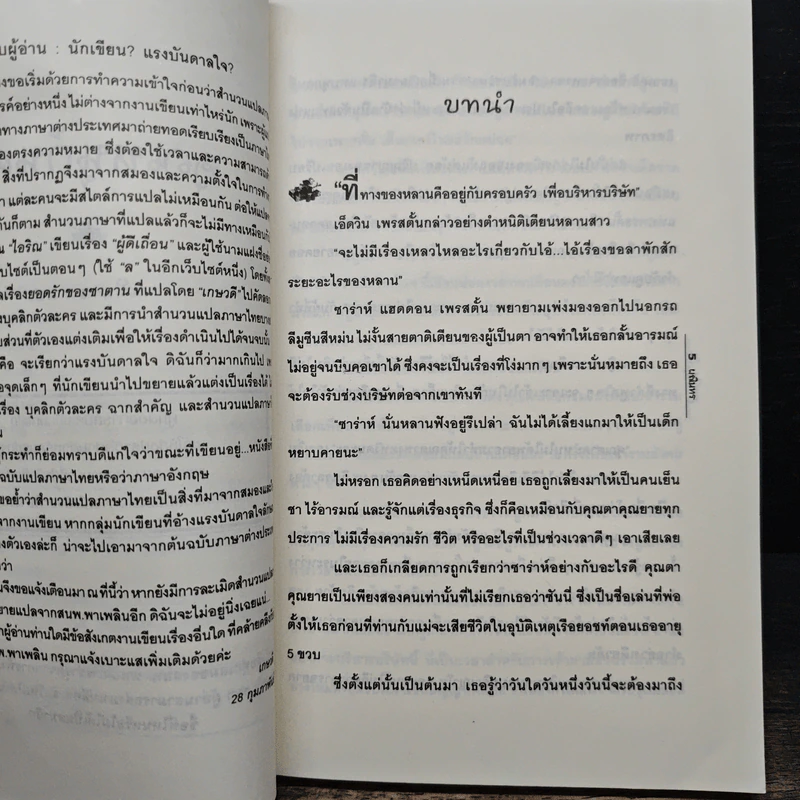 บผู้อ่าน : นักเขียน? แรงบันดาลใจ?
งขอเริ่มด้วยการทำความเข้าใจก่อนว่าสำนวนแปลภา
รค์อย่างหนึ่ง ไม่ต่างจากงานเขียนเท่าไหร่นัก เพราะผู้แป
าทางภาษาต่างประเทศมาถ่ายทอดเรียบเรียงเป็นภาษาไ
องตรงความหมาย ซึ่งต้องใช้เวลาและความสามารถ
สิ่งที่ปรากฏจึงมาจากสมองและความตั้งใจในการทำ
า แต่ละคนจะมีสไตล์การแปลไม่เหมือนกัน ต่อให้แปล
กันก็ตาม สำนวนภาษาที่แปลแล้วก็จะไม่มีทางเหมือน
ณ "ไอริณ" เขียนเรื่อง "ผู้ดีเถื่อน" และผู้ใช้นามแฝงชื่อ
บไซต์เป็นตอนๆ (ใช้ "ล" ในอีกเว็บไซต์หนึ่ง) โดยทั้ง
ลเรื่องยอดรักของซาตาน ที่แปลโดย "เกษวดี" ไปคัดลอ
งบุคลิกตัวละคร และมีการนำสำนวนแปลภาษาไทยบาง
บส่วนที่ตัวเองแต่งเติมเพื่อให้เรื่องดำเนินไปได้จนจบนั้
คือ จะเรียกว่าแรงบันดาลใจ ดิฉันก็ว่ามากเกินไป เพ
อจุดเล็กๆ ที่นักเขียนนำไปขยายแล้วแต่งเป็นเรื่องได้
รื่อง บุคลิกตัวละคร ฉากสำคัญ และสำนวนแปลภาษ
น
กระทำก็ย่อมทราบดีแก่ใจว่าขณะที่เขียนอยู่...หนังสือที่
ฉบับแปลภาษาไทยหรือว่าภาษาอังกฤษ
ขอย้ำว่าสำนวนแปลภาษาไทยเป็นสิ่งที่มาจากสมองและ
ลากงานเขียน หากกลุ่มนักเขียนที่อ้างแรงบันดาลใจลัก
งตัวเองล่ะก็ น่าจะไปเอามาจากต้นฉบับภาษาต่างประเ
ว่า
นจึงขอแจ้งเตือนมา ณ ที่นี้ว่า หากยังมีการละเมิดสำนวนแป
ายแปลจากสนพ.พาเพลินอีก ดิฉันจะไม่อยู่นิ่งเฉยแน่...
าผู้อ่านท่านใดมีข้อสังเกตงานเขียนเรื่องอื่นใด ที่คล้ายคลึงกับ
พ.พาเพลิน กรุณาแจ้งเบาะแสเพิ่มเติมด้วยค่ะ
เกษวดี
28 กุมภาพัน
บทนำ
"ที่ทางของหลานคืออยู่กับครอบครัว เพื่อบริหารบริษัท"
เอ็ดวิน เพรสตั้นกล่าวอย่างตำหนิติเตียนหลานสาว
"จะไม่มีเรื่องเหลวไหลอะไรเกี่ยวกับไอ้...ไอ้เรื่องขอลาพักสัก
ระยะอะไรของหลาน"
ซาร่าห์ แฮดดอน เพรสตั้น พยายามเพ่งมองออกไปนอกรถ
ลีมูซีนสีหม่น ไม่งั้นสายตาติเตียนของผู้เป็นตา อาจทำให้เธอกลั้นอารมณ์
ไม่อยู่จนบีบคอเขาได้ ซึ่งคงจะเป็นเรื่องที่โง่มากๆ เพราะนั่นหมายถึง เธอ
จะต้องรับช่วงบริษัทต่อจากเขาทันที
"ซาร่าห์ นั่นหลานฟังอยู่รึเปล่า ฉันไม่ได้เลี้ยงแกมาให้เป็นเด็ก
หยาบคายนะ"
ไม่หรอก เธอคิดอย่างเหน็ดเหนื่อย เธอถูกเลี้ยงมาให้เป็นคนเย็น
ชา ไร้อารมณ์ และรู้จักแต่เรื่องธุรกิจ ซึ่งก็คือเหมือนกับคุณตาคุณยายทุก
ประการ ไม่มีเรื่องความรัก ชีวิต หรืออะไรที่เป็นช่วงเวลาดีๆ เอาเสียเลย
และเธอก็เกลียดการถูกเรียกว่าซาร่าห์อย่างกับอะไรดี คุณตา
คุณยายเป็นเพียงสองคนเท่านั้นที่ไม่เรียกเธอว่าซันนี่ ซึ่งเป็นชื่อเล่นที่พ่อ
ตั้งให้เธอก่อนที่ท่านกับแม่จะเสียชีวิตในอุบัติเหตุเรือยอชท์ตอนเธออายุ
5 ขวบ
ซึ่งตั้งแต่นั้นเป็นต้นมา เธอรู้ว่าวันใดวันหนึ่งวันนี้จะต้องมาถึง
5